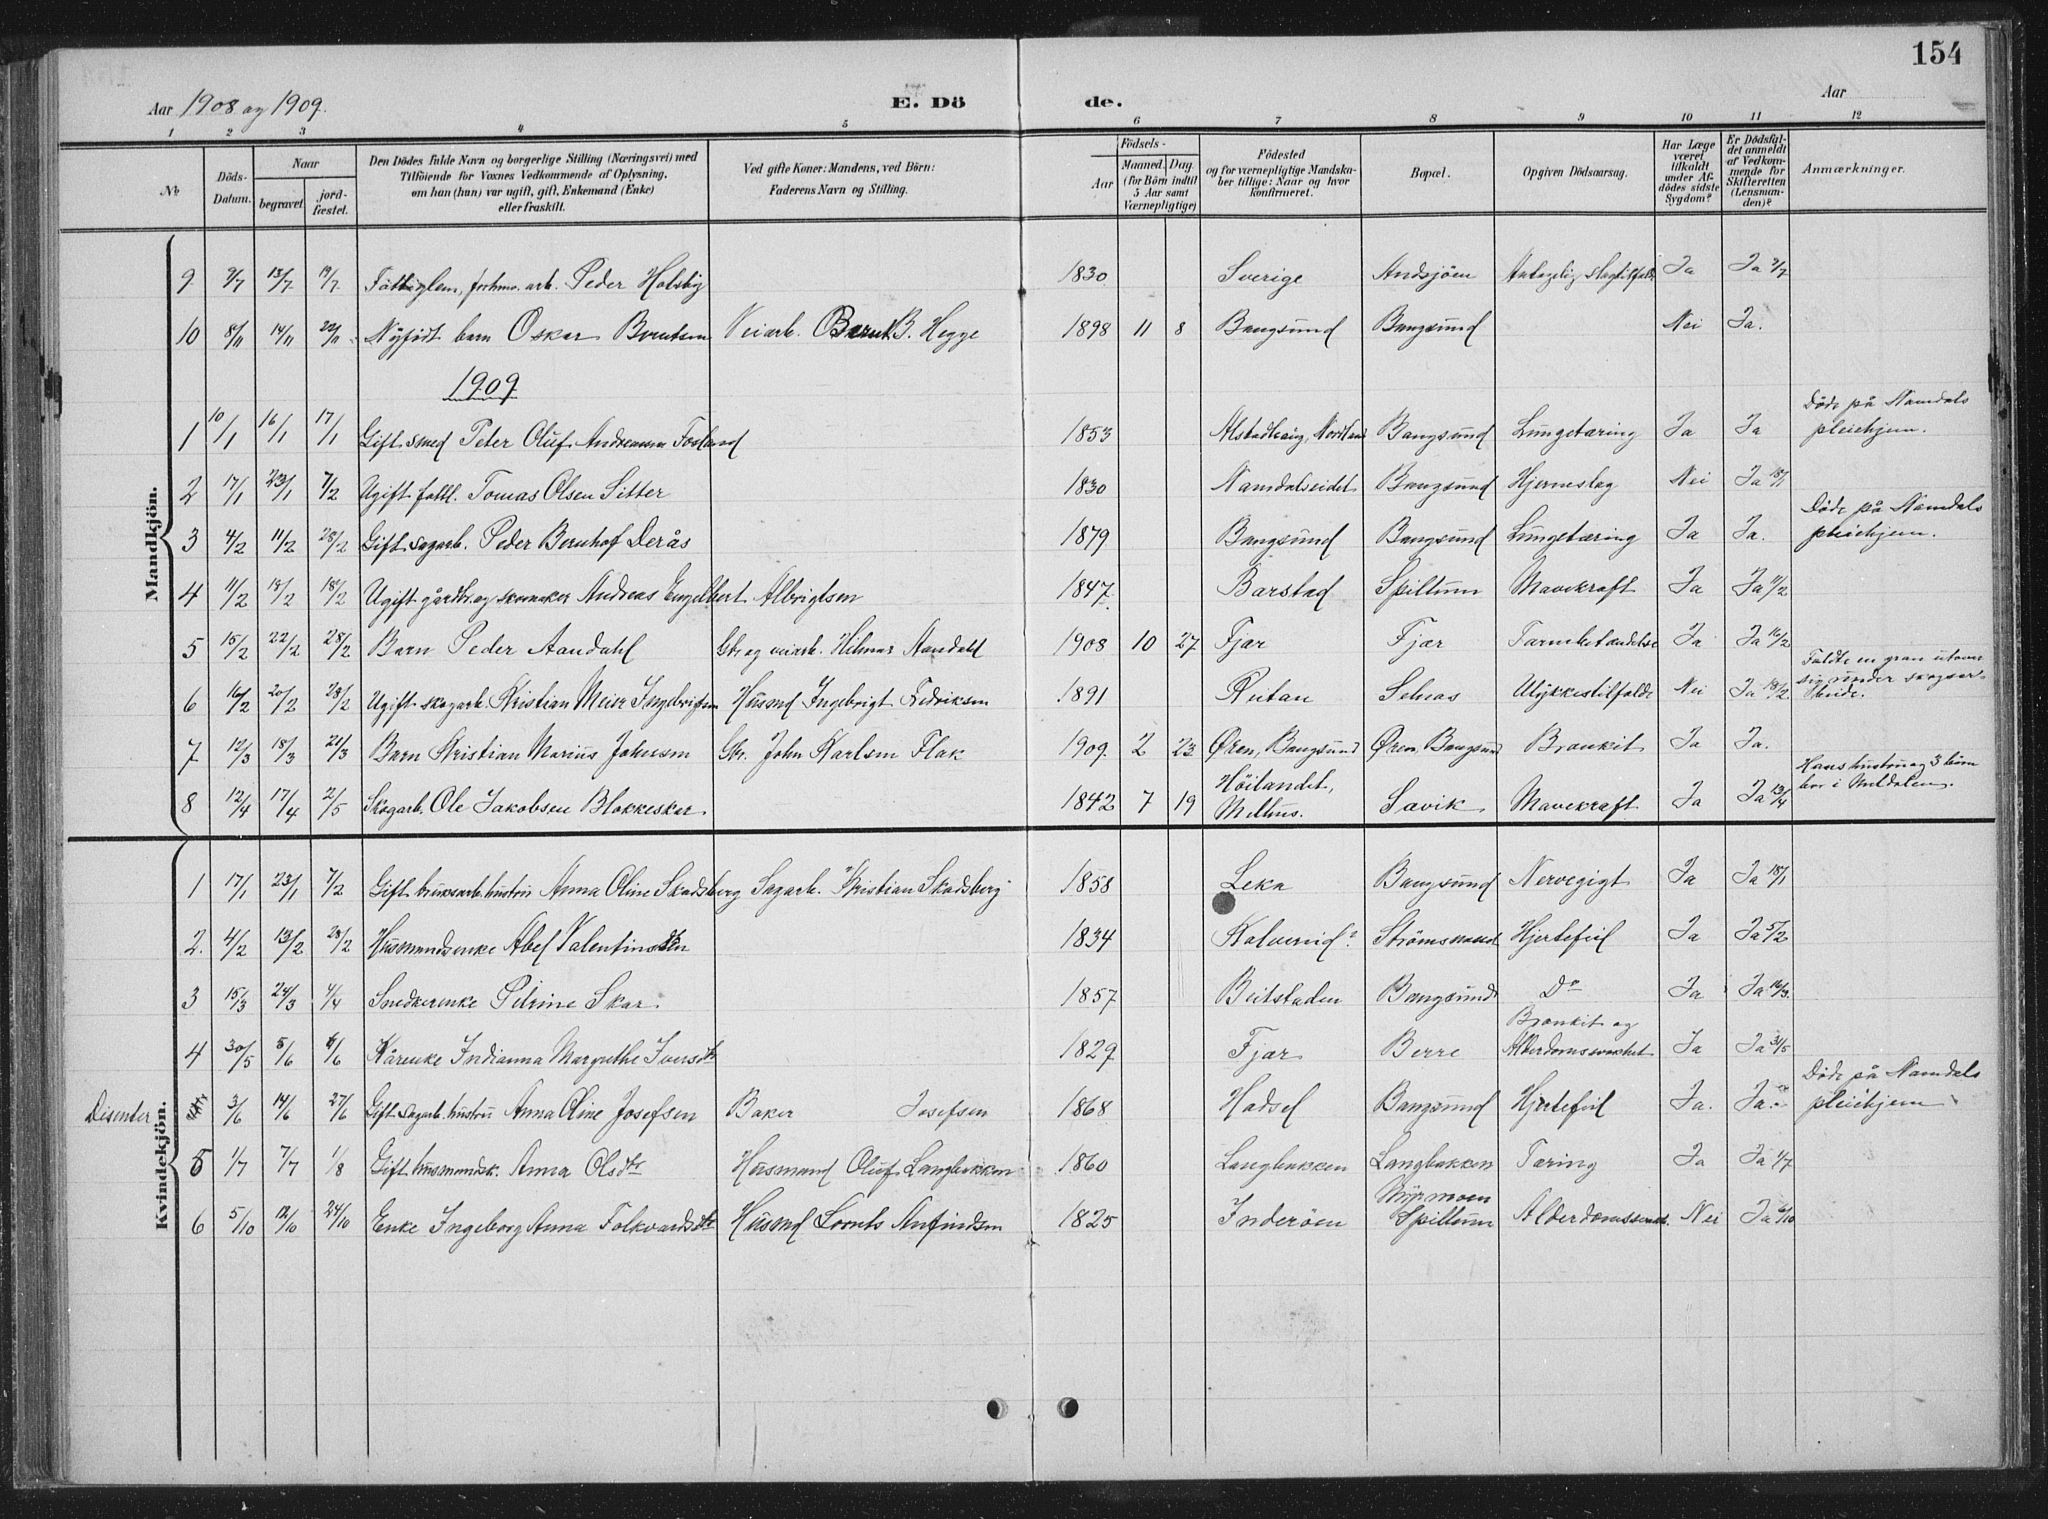 154
Aar 1908 og 1909.
E. Dö de.
Aar
1 2 3 4 5 6 7 8 9 10 11 12
No
Döds-Datum.
Naar
begravet.
jord-fæstet.
Den Dödes fulde Navn og borgerlige Stilling (Næringsvei) med
Tilföiende for Voxnes Vedkommende af Oplysning.
om han (hun) var ugift, gift, Enkemand (Enke)
eller fraskilt.
Ved gifte Koner: Mandens, ved Börn:
Faderens Navn og Stilling.
Födsels-
Aar
Maaned. Dag.
(for Börn indtil
5 Aar samt
Værnepligtige)
Födested
og for værnepligtige Mandska-
ber tillige: Naar og hvor
konfirmeret.
Bopæl.
Opgiven Dödsaarsag.
Har Læge
været
tilkaldt
under Af-
dödes sidste
Sygdom?
Er Dödsfal-
det anmeldt
af Vedkom-
mende for
Skifteretten
(Lensman-
den)?
Anmærkninger.
Mandkjön.
9 9/7 13/7 19/7 Fattiglem, arb. Peder Holsby 1830 Sverige Andsjöen Antagelig slagtilfælde Ja Ja 9/7
10 8/11 14/11 22/11 Nyfödt barn Oskar Berntsen Veiarb. Bernt B. Hegge 1898 11 8 Bangsund Bangsund Nei Ja.
1909
1 10/1 16/1 17/1 Gift smed Peter Oluf Andreassen Fosland 1853 Alstadhaug, Nordland Bangsund Lungetæring Ja Ja Döde på Namdals pleiehjem.
2 17/1 23/1 7/2 Ugift fattl. Tomas Olsen Sitter 1830 Namdalseidet Bangsund Hjerneslag Nei Ja 18/1
3 4/2 11/2 28/2 Gift sagarb. Peder Bernhof Derås 1879 Bangsund Bangsund Lungetæring Ja Ja. Döde på Namdals pleiehjem.
4 11/2 18/2 18/2 Ugift gårdbr. og skomaker Andreas Engelbert Albrigtsen 1847 Barstad Spillum Mavekræft Ja Ja 11/2
5 15/2 22/2 28/2 Barn Peder Aandahl Gbr. og veiarb. Hilmar Aandahl 1908 10 27 Fjær Fjær Tarmbetændelse Ja Ja 16/2
6 16/2 20/2 28/2 Ugift skogarb. Kristian Meier Ingebrigtsen Husmd Ingebrigt Fredriksen 1891 Rutan Selnas Ulykkestilfælde Nei Ja 18/2 Fældte en gran utover sig under skogsarbeide.
7 12/3 18/3 21/3 Barn Kristian Marius Johnsen Gbr. John Karlsen Flak 1909. 2 23 Øren, Bangsund Øren, Bangsund Bronkit Ja Ja.
8 12/4 17/4 2/5 Skogarb. Ole Jakobsen Blokkeskar 1842 7 19 Höilandet, Savik Mavekræft Ja Ja 13/4 Hans hustru og 3 börn bor i Meldalen.
Kvindekjön.
1 17/1 23/1 7/2 Gift hustru Anna Oline Skadsberg Sagarb. Kristian Skadsberg 1858 Leka Bangsund Nervegigt Ja Ja 18/1
2. 4/2 13/2 28/2 Husmandsenke Abel Valentinsen 1834 Kolvereid? Hjertefeil Ja Ja 5/2
3 15/3 24/3 4/4 Snedkerenke Petrine Skar. 1857 Beitstaden Bangsund Do Ja Ja 16/3.
4 30/5 5/6 6/6 Kårenke Indianna Margrethe Iversdtr 1829 Fjær Berre Bronkit og Alderdomssvakhet Ja Ja 31/5
Disenter 3/6 14/6 27/6 Gift sagarb. hustru Anna Oline Josefsen Baker Josefsen 1868 Hadsel Bangsund Hjertefeil Ja. Ja. Döde på Namdals pleiehjem
5 1/7 7/7 1/8 Gift husmandsk. Anna Olsdtr Husmand Oluf Langbakken 1860 Langbakken Langbakken Tæring Ja Ja 1/7
6 5/10 12/10 24/10 Enke Ingeborg Anna Folkvardsdtr Husmd Lornts Anfindsen 1825 Inderöen Spillum Nei Ja 6/10